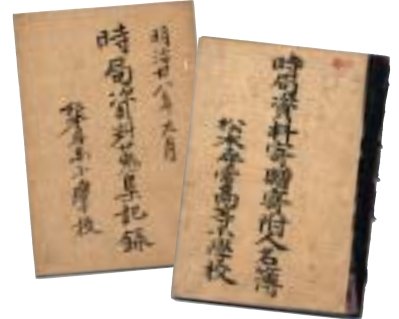 明治卅八年月
時局資料蒐集記録
小學校
時局資料寄贈寄附人名簿
松本尋常高等小學校